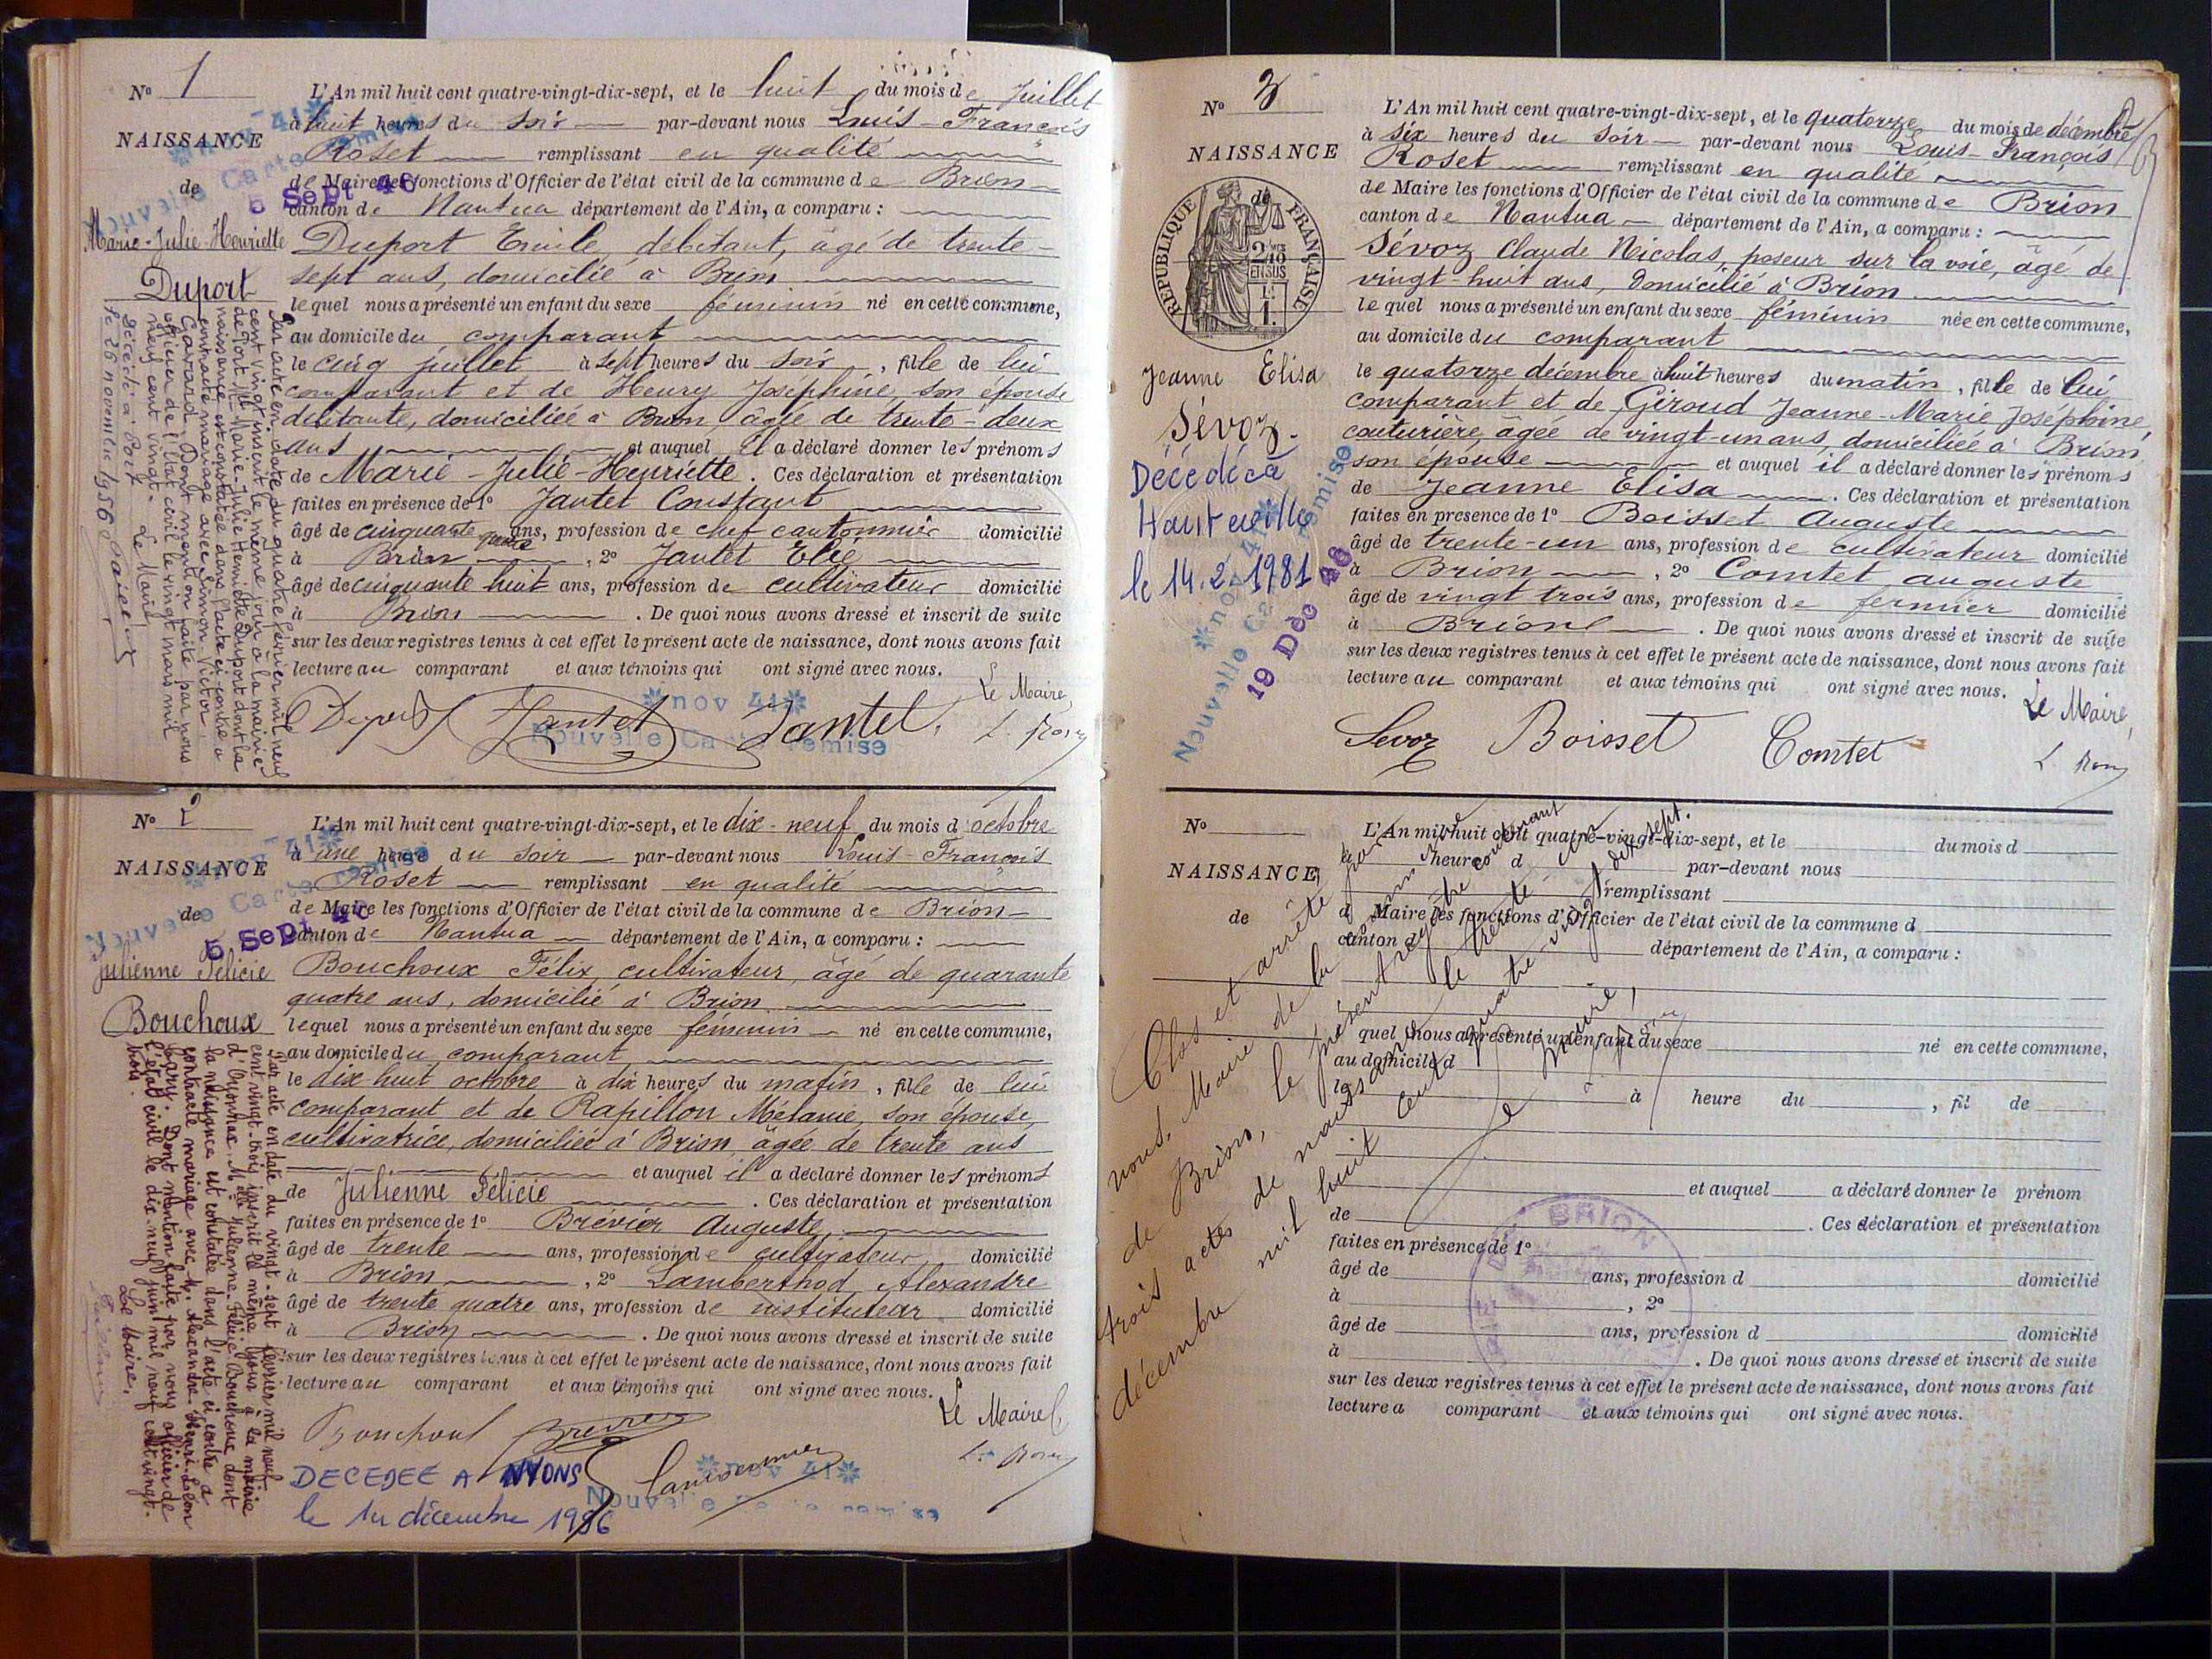 N° 1
NAISSANCE
de
Marie-Julie-Henriette
Duport
L'An mil huit cent quatre-vingt-dix-sept, et le huit du mois de Juillet
à huit heures du soir par-devant nous Louis-François
Roset remplissant en qualité
de Maire les fonctions d'Officier de l'état civil de la commune de Brion
canton de Nantua département de l'Ain, a comparu :
Duport Emile, débitant, âgé de trente-
sept ans, domicilié à Brion
lequel nous a présenté un enfant du sexe féminin né en cette commune,
au domicile du comparant
le cinq juillet à sept heures du soir, fille de lui
comparant et de Henry Joséphine, son épouse
débitante, domiciliée à Brion, âgée de trente-deux
ans et auquel il a déclaré donner les prénoms
de Marie-Julie-Henriette. Ces déclaration et présentation
faites en présence de 1° Jantet Constant
âgé de cinquante quatre ans, profession de chef cantonnier domicilié
à Brion, 2° Jantet Elie
âgé de cinquante huit ans, profession de cultivateur domicilié
à Brion. De quoi nous avons dressé et inscrit de suite
sur les deux registres tenus à cet effet le présent acte de naissance, dont nous avons fait
lecture au comparant et aux témoins qui ont signé avec nous.
Le Maire,
Duport Jantet Jantet L. Roset
nov 41
Nouvelle Carte remise
5 Sept 46
Par acte en date du quatre février mil neuf
cent vingt inscrit le même jour à la mairie
de Port Mlle Marie-Julie Henriette Duport dont la
naissance est constatée dans l'acte ci-contre a
contracté mariage avec Simon Victor
Gavard. Dont mention faite par nous
officier de l'état civil le vingt mars mil
neuf cent vingt. Le Maire
Décédée à Port
le 26 novembre 1956
N° 2
NAISSANCE
de
Julienne Félicie
Bouchoux
L'An mil huit cent quatre-vingt-dix-sept, et le dix-neuf du mois d'octobre
à une heure du soir par-devant nous Louis-François
Roset remplissant en qualité
de Maire les fonctions d'Officier de l'état civil de la commune de Brion
canton de Nantua département de l'Ain, a comparu :
Bouchoux Félix, cultivateur, âgé de quarante
quatre ans, domicilié à Brion
lequel nous a présenté un enfant du sexe féminin né en cette commune,
au domicile du comparant
le dix huit octobre à dix heures du matin, fille de lui
comparant et de Rapillon Mélanie, son épouse,
cultivatrice, domiciliée à Brion âgée de trente ans
et auquel il a déclaré donner les prénoms
de Julienne Félicie. Ces déclaration et présentation
faites en présence de 1° Brévier Auguste,
âgé de trente ans, profession de cultivateur domicilié
à Brion, 2° Lamberthod Alexandre
âgé de trente quatre ans, profession de instituteur domicilié
à Brion. De quoi nous avons dressé et inscrit de suite
sur les deux registres tenus à cet effet le présent acte de naissance, dont nous avons fait
lecture au comparant et aux témoins qui ont signé avec nous.
Le Maire
Bouchoux Brévier L. Roset
DECEDEE A NYONS
le 1er décembre 1986
nov 41
Nouvelle Carte remise
5 Sept 46
Par acte en date du vingt-sept février mil neuf
cent vingt-trois inscrit le même jour à la mairie
d'Oyonnax, Mlle Julienne-Félicie Bouchoux dont
la naissance est constatée dans l'acte ci-contre a
contracté mariage avec M. Alexandre-Henri-Léon
Dont mention faite par nous officier de
l'état civil le dix-neuf juin mil neuf cent vingt-
trois. Le Maire,
N° 3
NAISSANCE
de
REPUBLIQUE FRANÇAISE
2/10 EN SUS
Jeanne Elisa
Sévoz.
Décédée à
Hauteville
le 14.2.1981
nov 41
Nouvelle Carte remise
19 Déc 46
L'An mil huit cent quatre-vingt-dix-sept, et le quatorze du mois de décembre
à six heures du soir par-devant nous Louis-François
Roset remplissant en qualité
de Maire les fonctions d'Officier de l'état civil de la commune de Brion
canton de Nantua département de l'Ain, a comparu :
Sévoz Claude Nicolas, poseur sur la voie, âgé de
vingt-huit ans, domicilié à Brion
lequel nous a présenté un enfant du sexe féminin née en cette commune,
au domicile du comparant
le quatorze décembre à huit heures du matin, fille de lui
comparant et de Giroud Jeanne-Marie Joséphine,
couturière, âgée de vingt-un ans, domiciliée à Brion
son épouse et auquel il a déclaré donner les prénoms
de Jeanne Elisa. Ces déclaration et présentation
faites en présence de 1° Boisset Auguste
âgé de trente-un ans, profession de cultivateur domicilié
à Brion, 2° Comtet auguste
âgé de vingt trois ans, profession de fermier domicilié
à Brion. De quoi nous avons dressé et inscrit de suite
sur les deux registres tenus à cet effet le présent acte de naissance, dont nous avons fait
lecture au comparant et aux témoins qui ont signé avec nous.
Le Maire,
Sevoz Boisset Comtet L. Roset
N°
NAISSANCE
de
L'An mil huit cent quatre-vingt-dix-sept, et le du mois d
à heure d par-devant nous
remplissant
d Maire les fonctions d'Officier de l'état civil de la commune d
canton d département de l'Ain, a comparu :
quel nous a présenté un enfant du sexe né en cette commune,
au domicile d
le à heure du, fil de
et auquel a déclaré donner le prénom
de. Ces déclaration et présentation
faites en présence de 1°
âgé de ans, profession d domicilié
à, 2°
âgé de ans, profession d domicilié
à. De quoi nous avons dressé et inscrit de suite
sur les deux registres tenus à cet effet le présent acte de naissance, dont nous avons fait
lecture a comparant et aux témoins qui ont signé avec nous.
Clos et arrêté par
nous, Maire de la commune
de Brion, le présent registre contenant
trois actes de naissance le trente-un
décembre mil huit cent quatre vingt dix sept.
Le Maire,
BRION